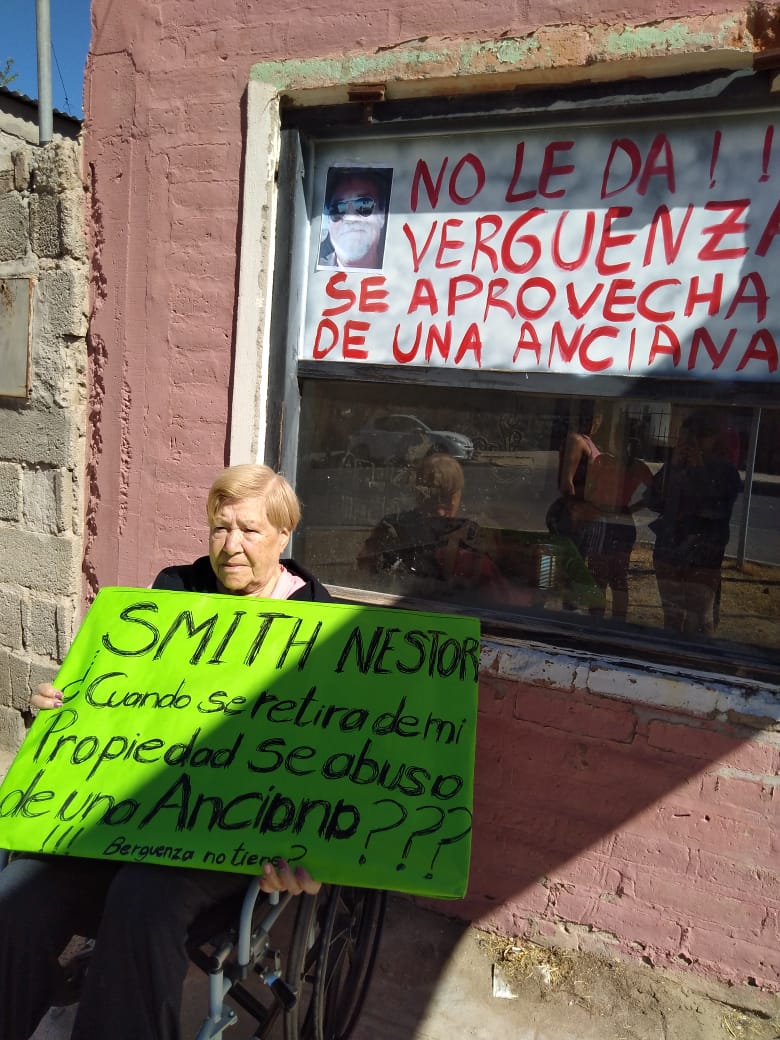 NO LE DA!!
VERGUENZA
SE APROVECHA
DE UNA ANCIANA
SMITH NESTOR
¿Cuando se retira de mi
Propiedad Se abuso
de una Anciana???
!!! Berguenza no tiene?